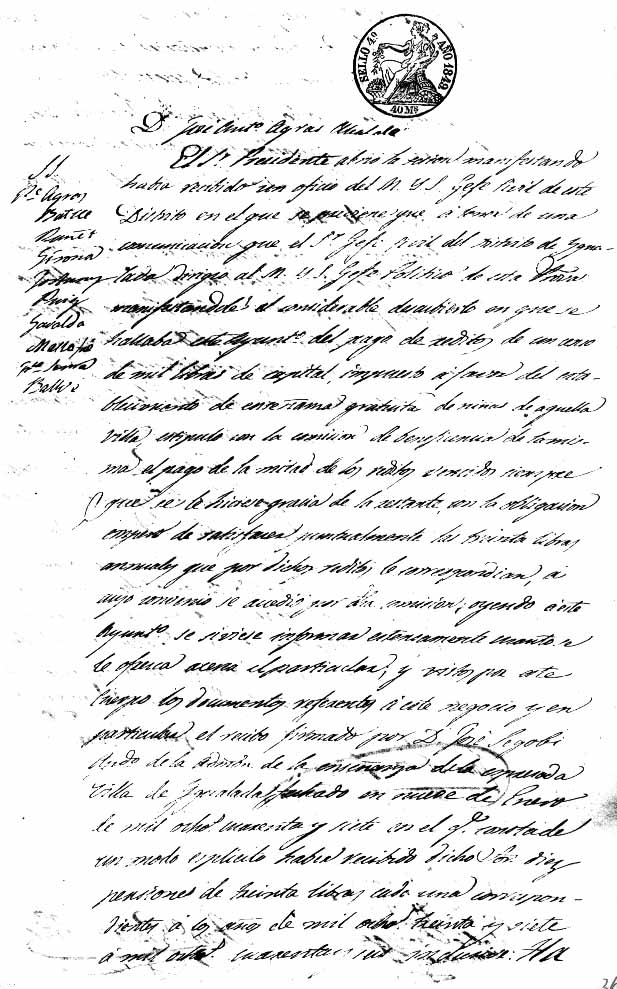 SELLO 4º AÑO 1849
40 Ms
D. José Antº Agras Alcalde
El Sr. Presidente abrió la sesion manifestando
S.S.
Pte Agras
Batlle
Girona
Puig
Gavaldá
habia recibido un oficio del M. Y. S. Gefe Civil de este
Distrito en el que se que á traves de una
comunicacion que el Sr Gefe Civil del distrito de Ygua-
lada dirigió al M. Y. S. Gefe Politico de esta Provª
manifestandole el considerable descubierto en que se
hallaba este Ayuntº del pago de reditos de un censo
de mil libras de capital, impuesto á favor del esta-
blecimiento de enseñanza gratuita de niñas de aquella
Villa, estipuló con la comision de beneficencia de la mis-
ma el pago de la mitad de los reditos vencidos siempre
que se le hiciese gracia de la restante, con la obligacion
empero de satisfacer puntualmente las treinta libras
anuales que por dichos reditos le correspondian, á
cuyo convenio se accedió por dha comision, oyendo á este
Ayuntº se sirviese informar estensamente cuanto se
le ofrezca acerca el particular, y vistos por este
Cuerpo los documentos referentes á este negocio y en
particular el recibo firmado por D. José Segobi
de la Admon de la enseñanza de la espresada
Villa de Igualada, fechado en nueve de Enero
de mil ochos cuarenta y siete en el qe consta de
un modo esplicito haber recibido dicho Sr. diez
pensiones de treinta libras cada una correspon-
dientes á los años de mil ochos treinta y siete
á mil ochos cuarenta y seis inclusive. Ha
26